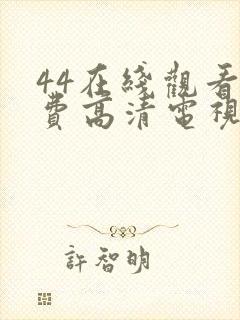 44在綫觀看
費高清電視
許智明